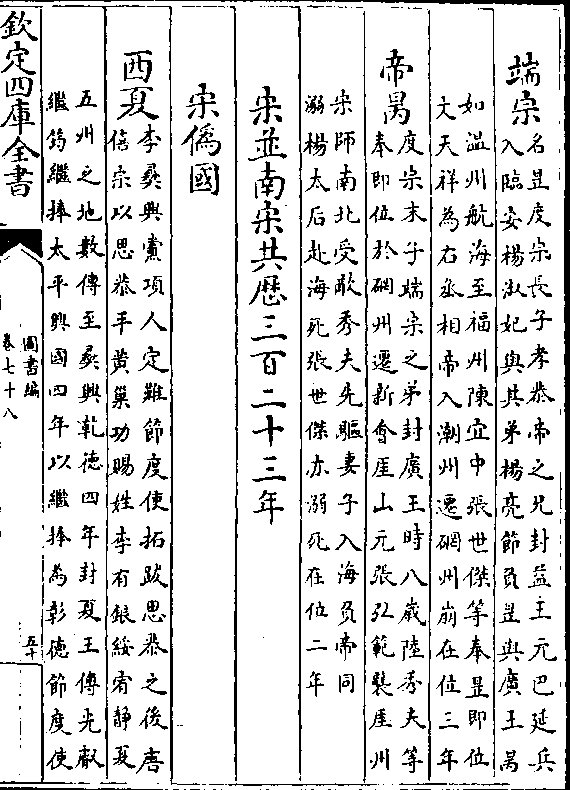 端宗
名昰度宗長子孝恭帝之兄封益王元巴延兵
入臨安楊淑妃與其弟楊亮節負昰與廣王昺
如溫州航海至福州陳宜中張世傑等奉昰即位
文天祥為右丞相帝入潮州遷碙州崩在位三年
帝昺
度宗末子端宗之弟封廣王時八歲陸秀夫等
奉即位於碙州遷新會厓山元張弘範襲厓州
宋師南北受敵秀夫先驅妻子入海負帝同
溺楊太后赴海死張世傑亦溺死在位二年
宋並南宋共歴三百二十三年
宋僞國
西夏
李彛興黨項人定難節度使拓跋思恭之後唐
僖宗以思恭平黄巢功賜姓李有銀綏宥静夏
五州之地數傳至彛興乾德四年封夏王傳光叡
繼筠繼捧太平興國四年以繼捧為彰德節度使
欽定四庫全書
圖書編
卷七十八
五十